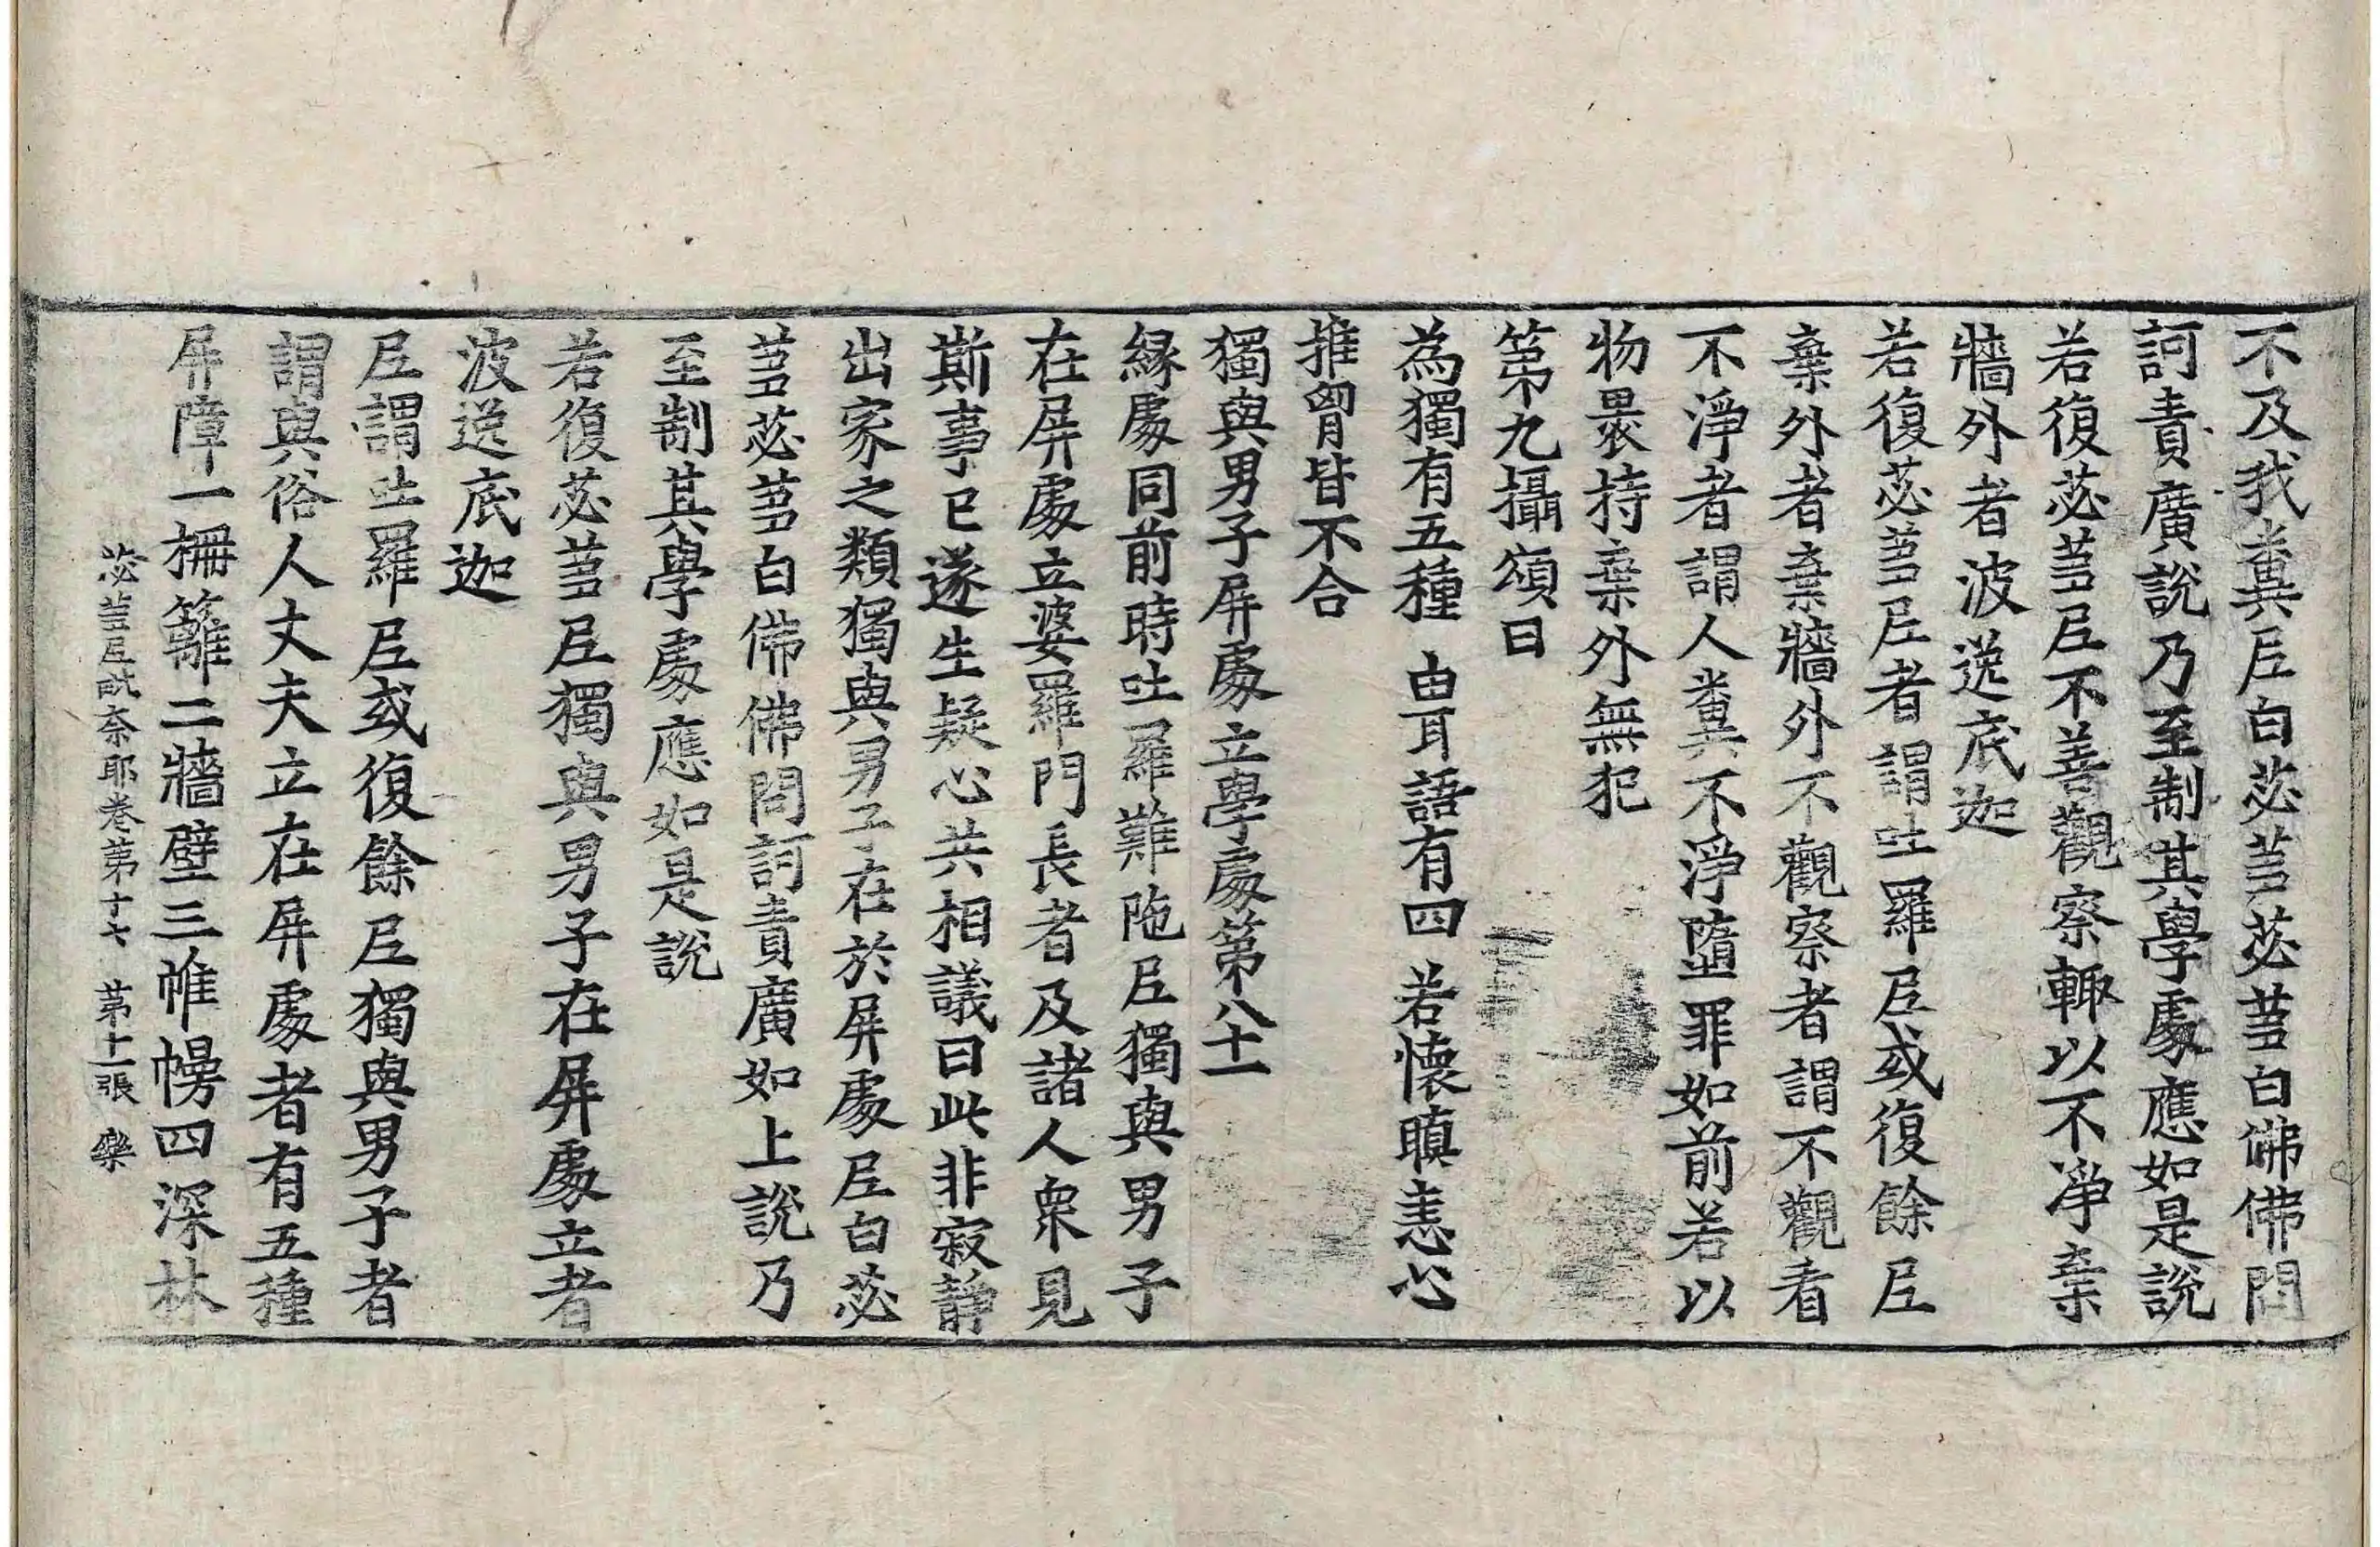 不及我糞𡰱白苾芻苾芻白佛佛問
訶責廣說乃至制其學處應如是說
若復苾芻𡰱不善觀察輙以不淨棄
牆外者波逸底迦
若復苾芻𡰱者謂吐羅𡰱或復餘𡰱
棄外者棄牆外不觀察者謂不觀看
不淨者謂人糞不淨墮罪如前若以
物褁持棄外無犯
第九攝頌曰
為獨有五種　由耳語有四　若懷瞋恚心
推胷皆不合
獨與男子屏處立學處第八十一
緣處同前時吐羅難陁𡰱獨與男子
在屏處立婆羅門長者及諸人衆見
斯事已遂生疑心共相議曰此非寂静
出家之類獨與男子在於屏處𡰱白苾
芻苾芻白佛佛問訶責廣如上說乃
至制其學處應如是說
若復苾芻𡰱獨與男子在屏處立者
波逸底迦
𡰱謂吐羅𡰱或復餘𡰱獨與男子者
謂與俗人丈夫立在屏處者有五種
屏障一柵籬二牆壁三帷幔四深林
苾芻𡰱毗奈耶卷第十七　第十一張　樂